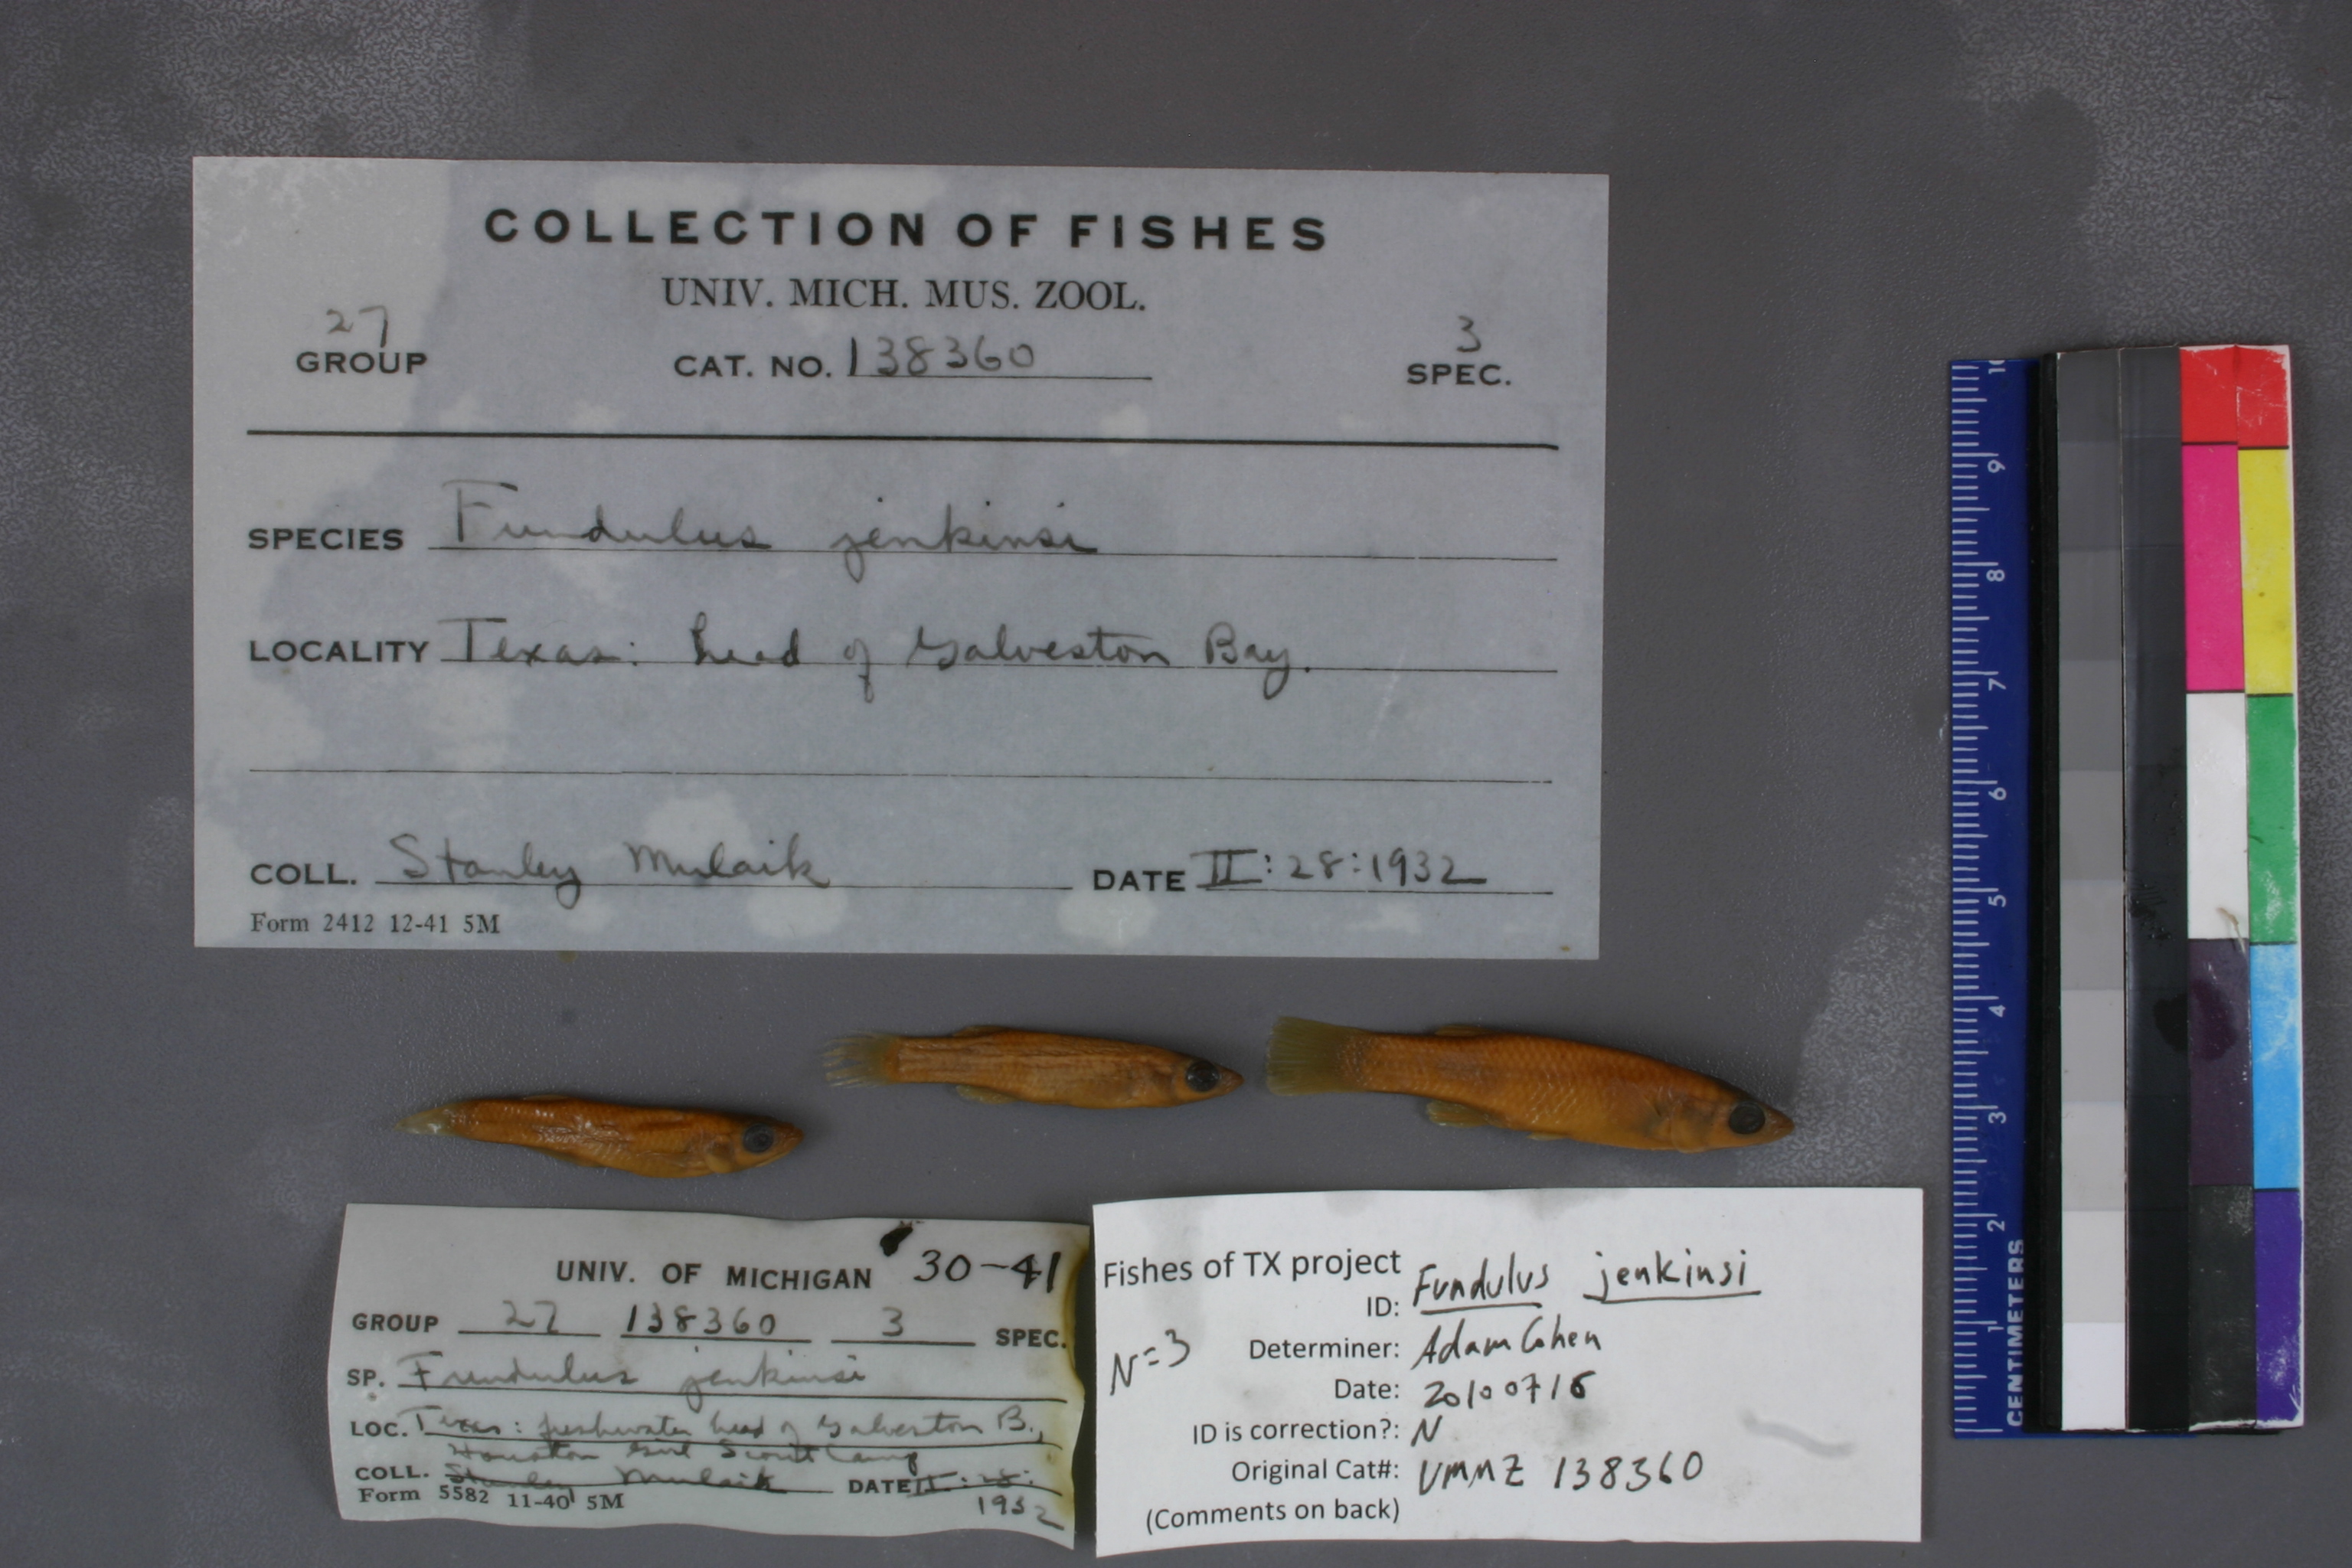 COLLECTION OF FISHES
UNIV. MICH. MUS. ZOOL.
27
GROUP
CAT. NO. 138360
3
SPEC.
SPECIES Fundulus jenkinsi
LOCALITY Texas: head of Galveston Bay.
COLL. Stanley Mulaik DATE II:28:1932
Form 2412 12-41 5M
UNIV. OF MICHIGAN 30-41
GROUP 27 138360 3 SPEC.
SP. Fundulus jenkinsi
LOC. Texas: freshwater head of Galveston B.,
Houston Girl Scout Camp
COLL. Stanley Mulaik DATE II:28:
1932
Form 5582 11-40 5M
Fishes of TX project
ID: Fundulus jenkinsi
N=3
Determiner: Adam Cohen
Date: 20100716
ID is correction?: N
Original Cat#: UMMZ 138360
(Comments on back)
10
9
8
7
6
5
4
3
2
1
CENTIMETERS